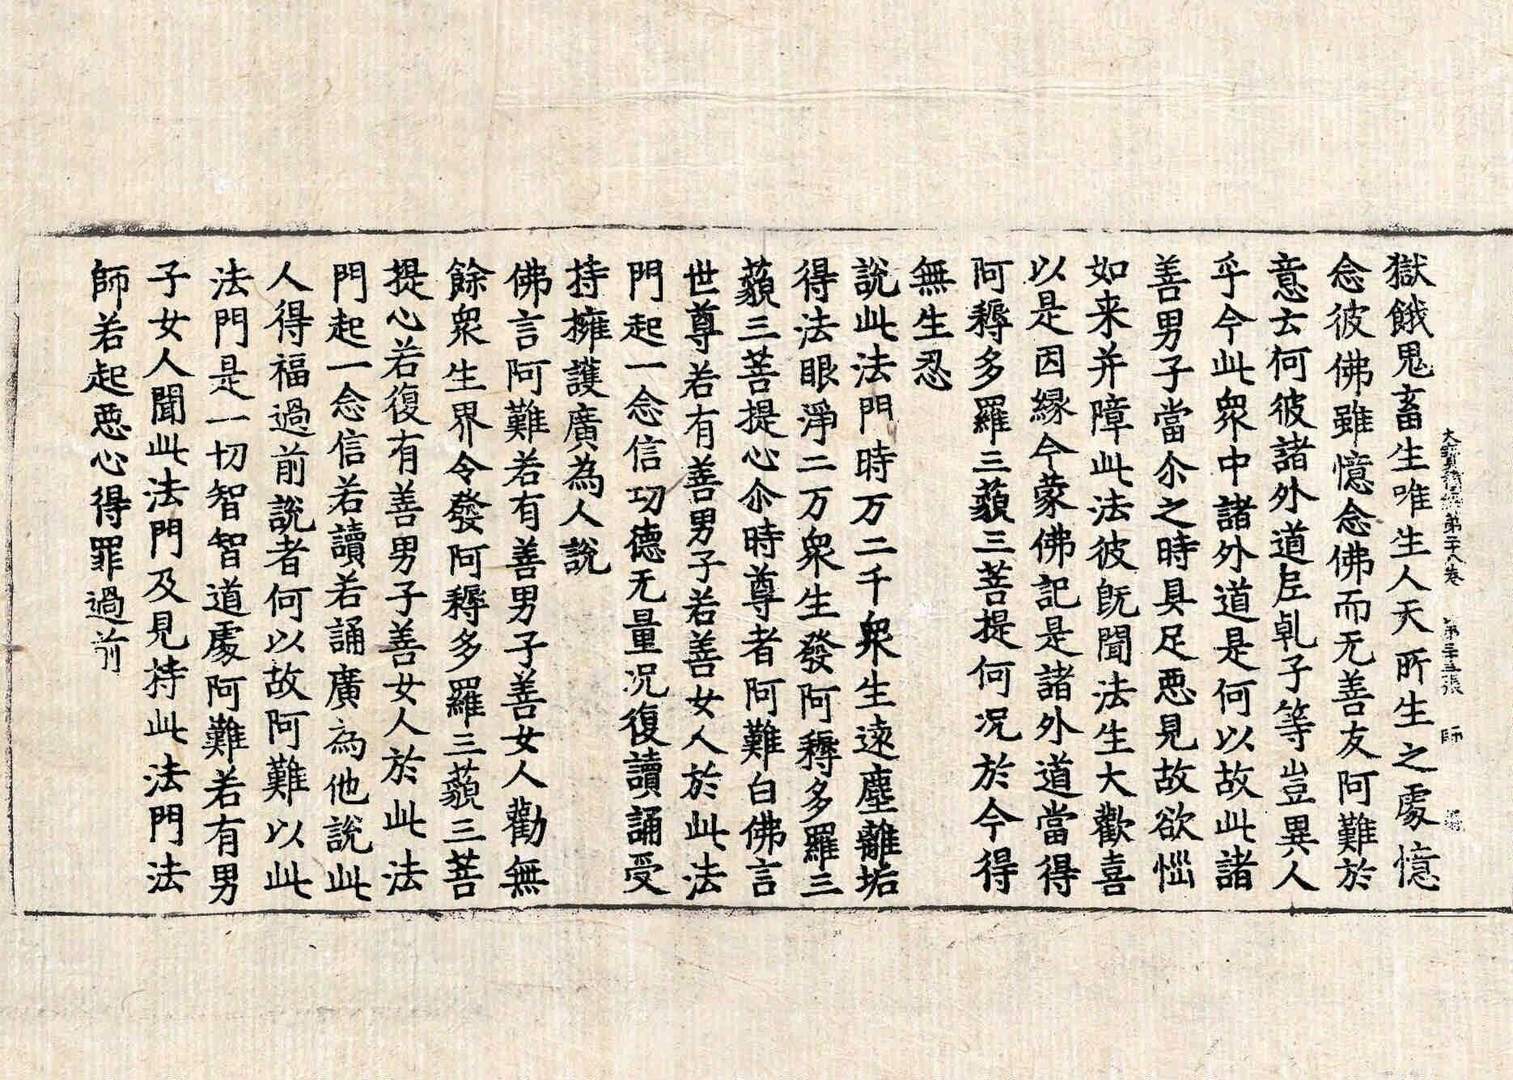 大寶積經第二十八卷 第二十五張 師
獄餓鬼畜生唯生人天所生之處憶
念彼佛雖憶念佛而无善友阿難於
意云何彼諸外道尼乹子等豈異人
乎今此衆中諸外道是何以故此諸
善男子當尒之時具足悪見故欲惱
如来并障此法彼旣聞法生大歡喜
以是因緣今蒙佛記是諸外道當得
阿耨多羅三藐三菩提何况於今得
無生忍
說此法門時万二千衆生遠塵離垢
得法眼淨二万衆生發阿耨多羅三
藐三菩提心尒時尊者阿難白佛言
世尊若有善男子若善女人於此法
門起一念信功德无量况復讀誦受
持擁護廣為人說
佛言阿難若有善男子善女人勸無
餘衆生界令發阿耨多羅三藐三菩
提心若復有善男子善女人於此法
門起一念信若讀若誦廣為他說此
人得福過前說者何以故阿難以此
法門是一切智智道處阿難若有男
子女人聞此法門及見持此法門法
師若起悪心得罪過前